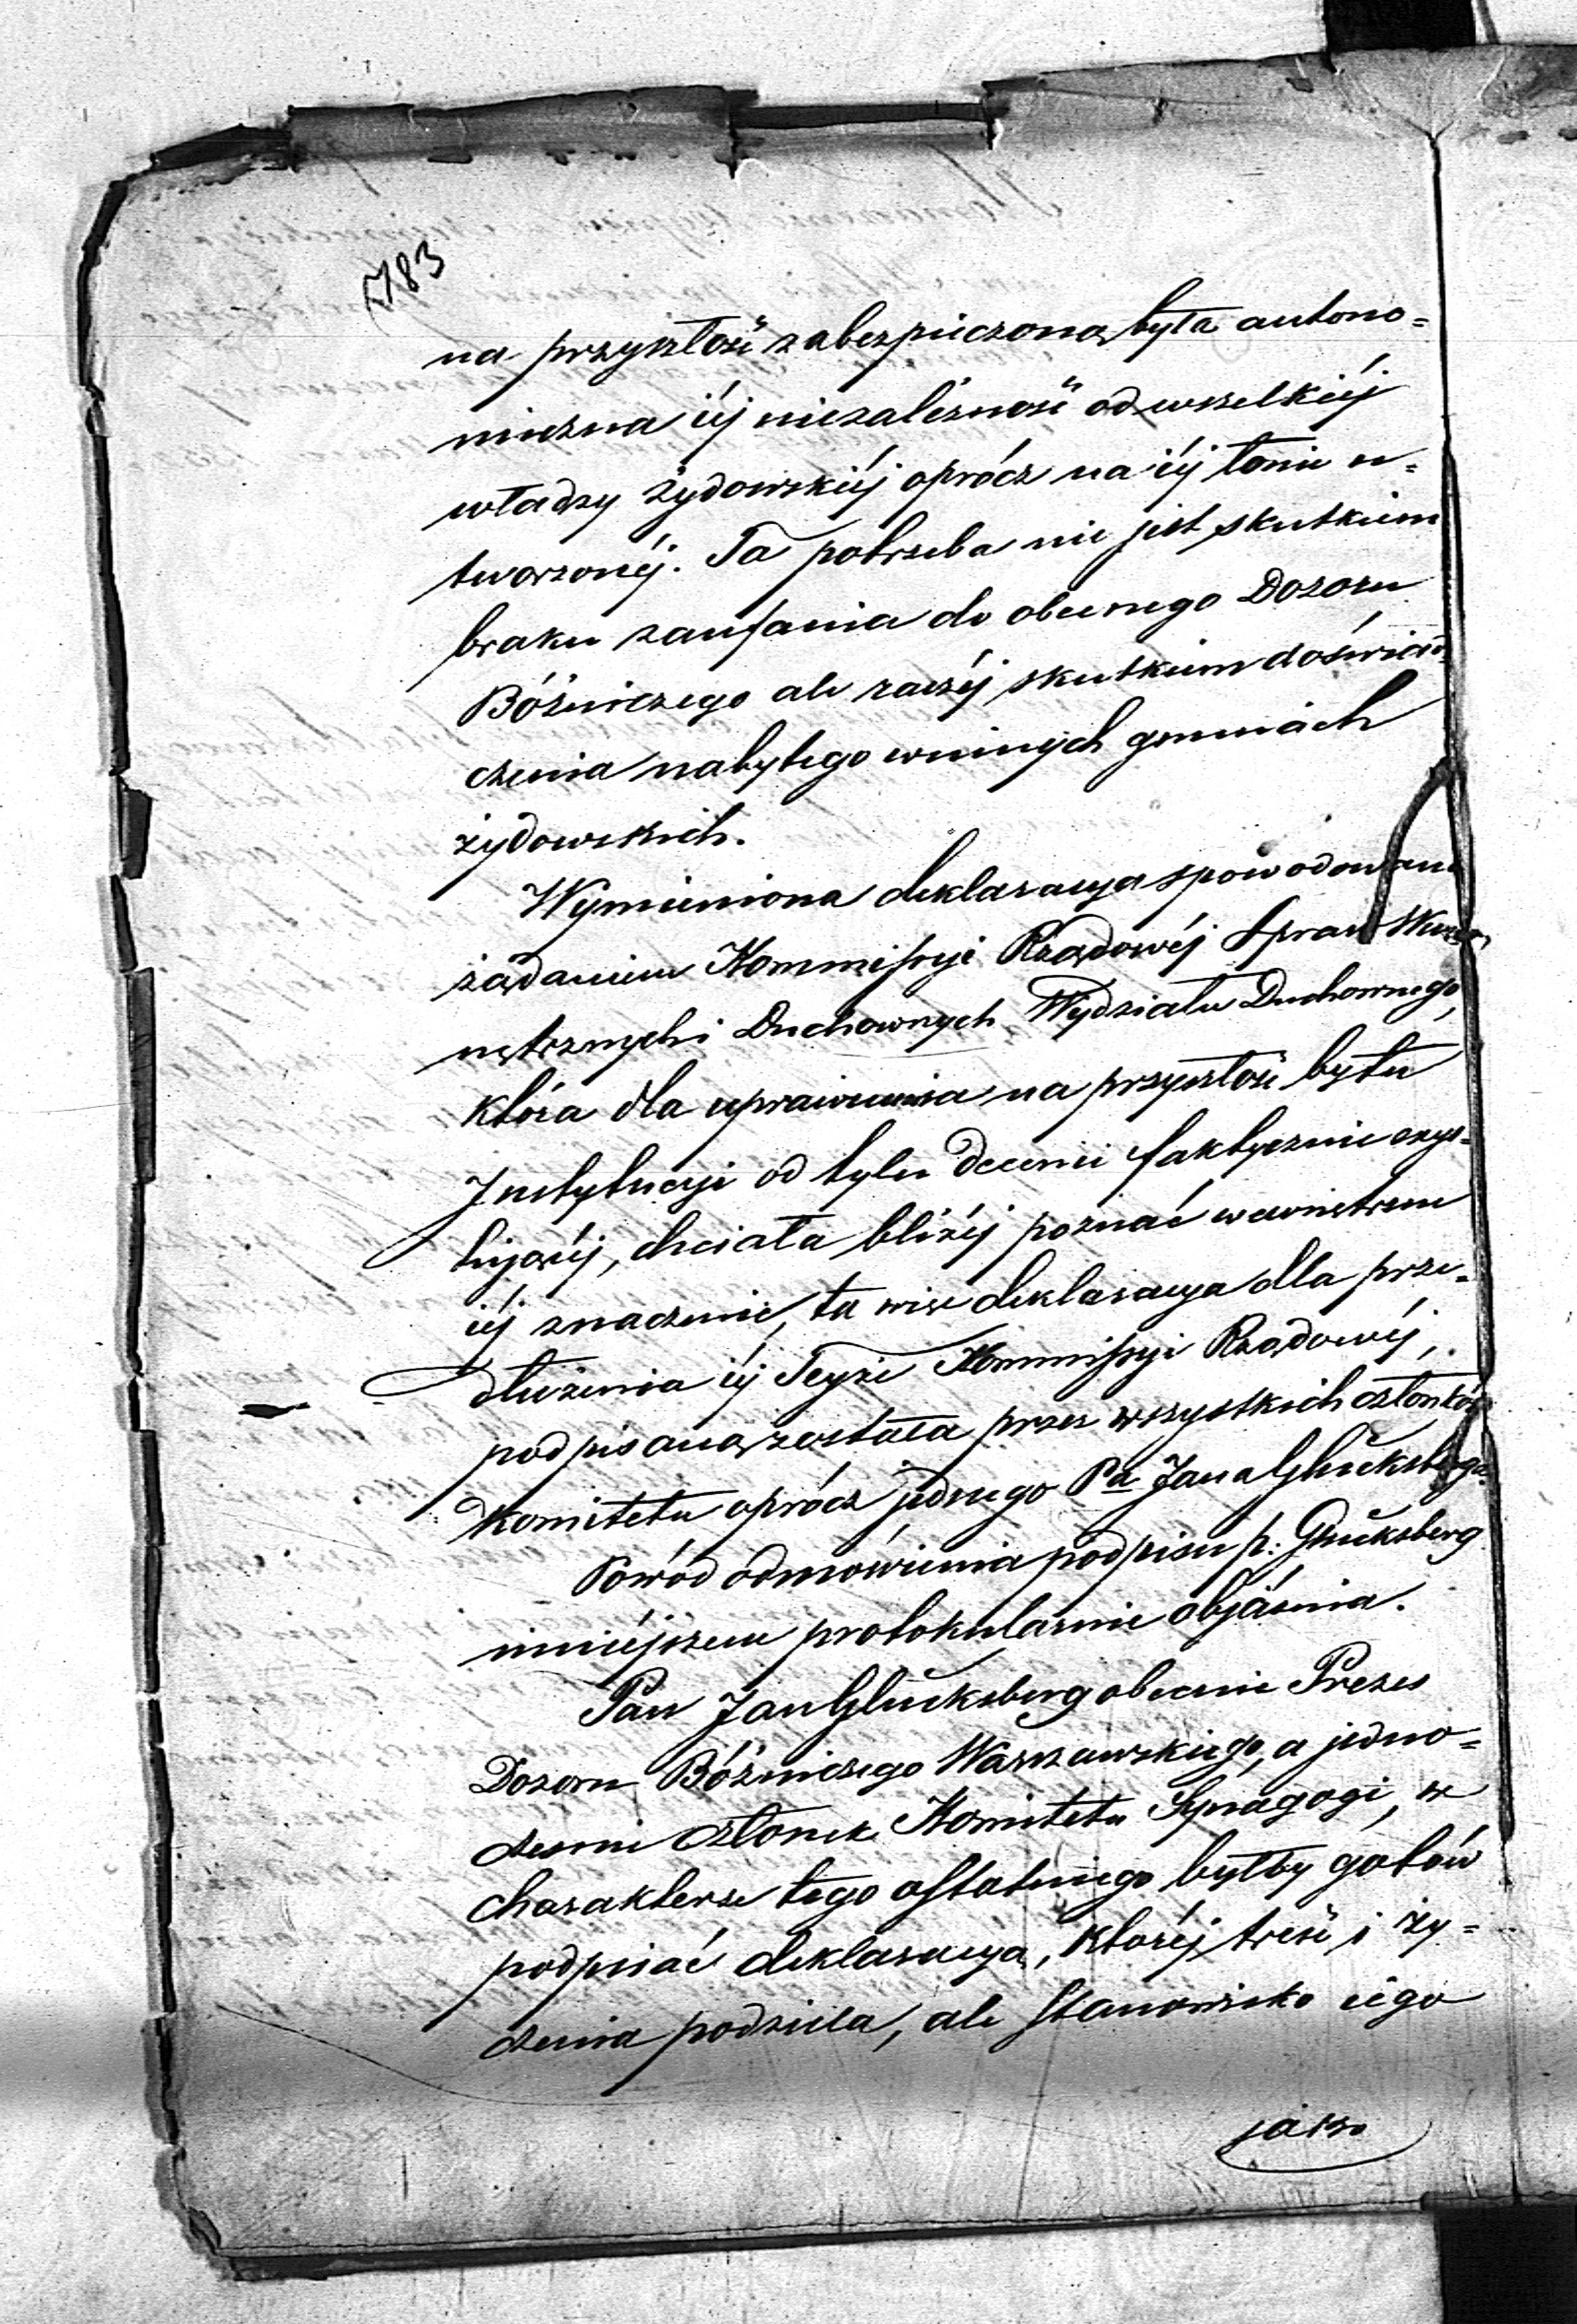 783
na przyszłość zabezpieczoną była autono=
miczna iéj niezależność od wszelkiéj
władzy żydowskiéj oprócz na iéj łonie u=
tworzonéj. Ta potrzeba nie jest skutkiem
braku zaufania do obecnego Dozoru
Bóżniczego ale raczéj skutkiem doświad=
czenia nabytego w innych gminach
żydowskich.
Wymieniona deklaracya spowodowana
żądaniem Kommissyi Rządowéj Spraw Wew=
nętrznych i Duchownych Wydziału Duchownego,
która dla uprawnienia na przyszłość bytu
Instytucyi od tylu decenii faktycznie exys=
tującéj, chciała bliżéj poznać wewnętrzne
iéj znaczenie, ta więc deklaracya dla prze=
dłużenia iéj Teyże Kommissyi Rządowéj,
podpisaną została przez wszystkich członków
Komitetu oprócz jednego Pa Jana Glücksberga.
Powód odmówienia podpisu p: Glücksberg
niniéjszem protokularnie objaśnia.
Pan Jan Glücksberg obecnie Prezes
Dozoru Bóżniczego Warszawskiego, a jedno=
cześnie członek Komitetu Synagogi, w
charakterze tego ostatniego byłby gotów
podpisać deklaracyą, któréj treść i ży=
czenia podziela, ale stanowisko iego
jako